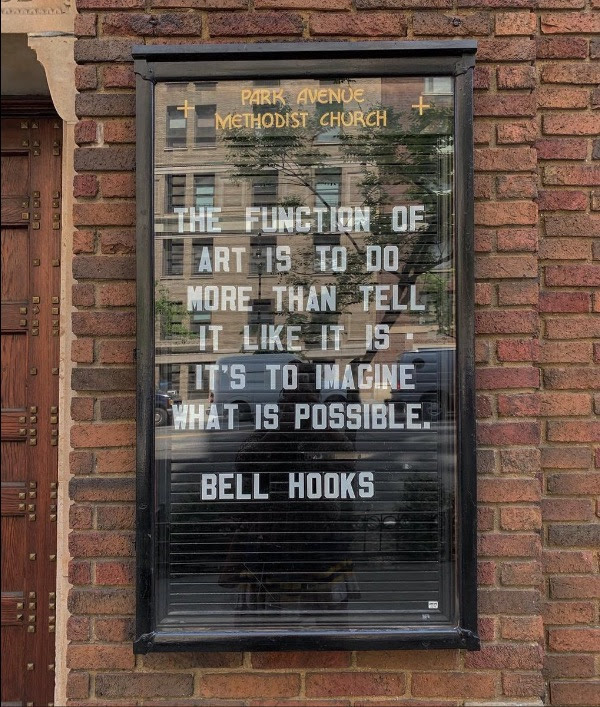 PARK AVENUE
METHODIST CHURCH
THE FUNCTION OF
ART IS TO DO
MORE THAN TELL
IT LIKE IT IS -
IT'S TO IMAGINE
WHAT IS POSSIBLE.
BELL HOOKS